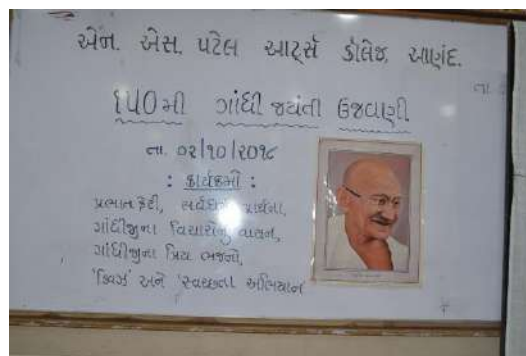 એન. એસ. પટેલ આર્ટ્સ કૉલેજ, આણંદ.
તા.
૧૫૦મી ગાંધી જયંતી ઉજવણી
તા. ૦૨/૧૦/૨૦૧૮
: કાર્યક્રમો :
પ્રભાત ફેરી, સર્વધર્મ પ્રાર્થના,
ગાંધીજીના વિચારોનું વાચન,
ગાંધીજીના પ્રિય ભજનો,
'ક્વિઝ' અને 'સ્વચ્છતા અભિયાન'